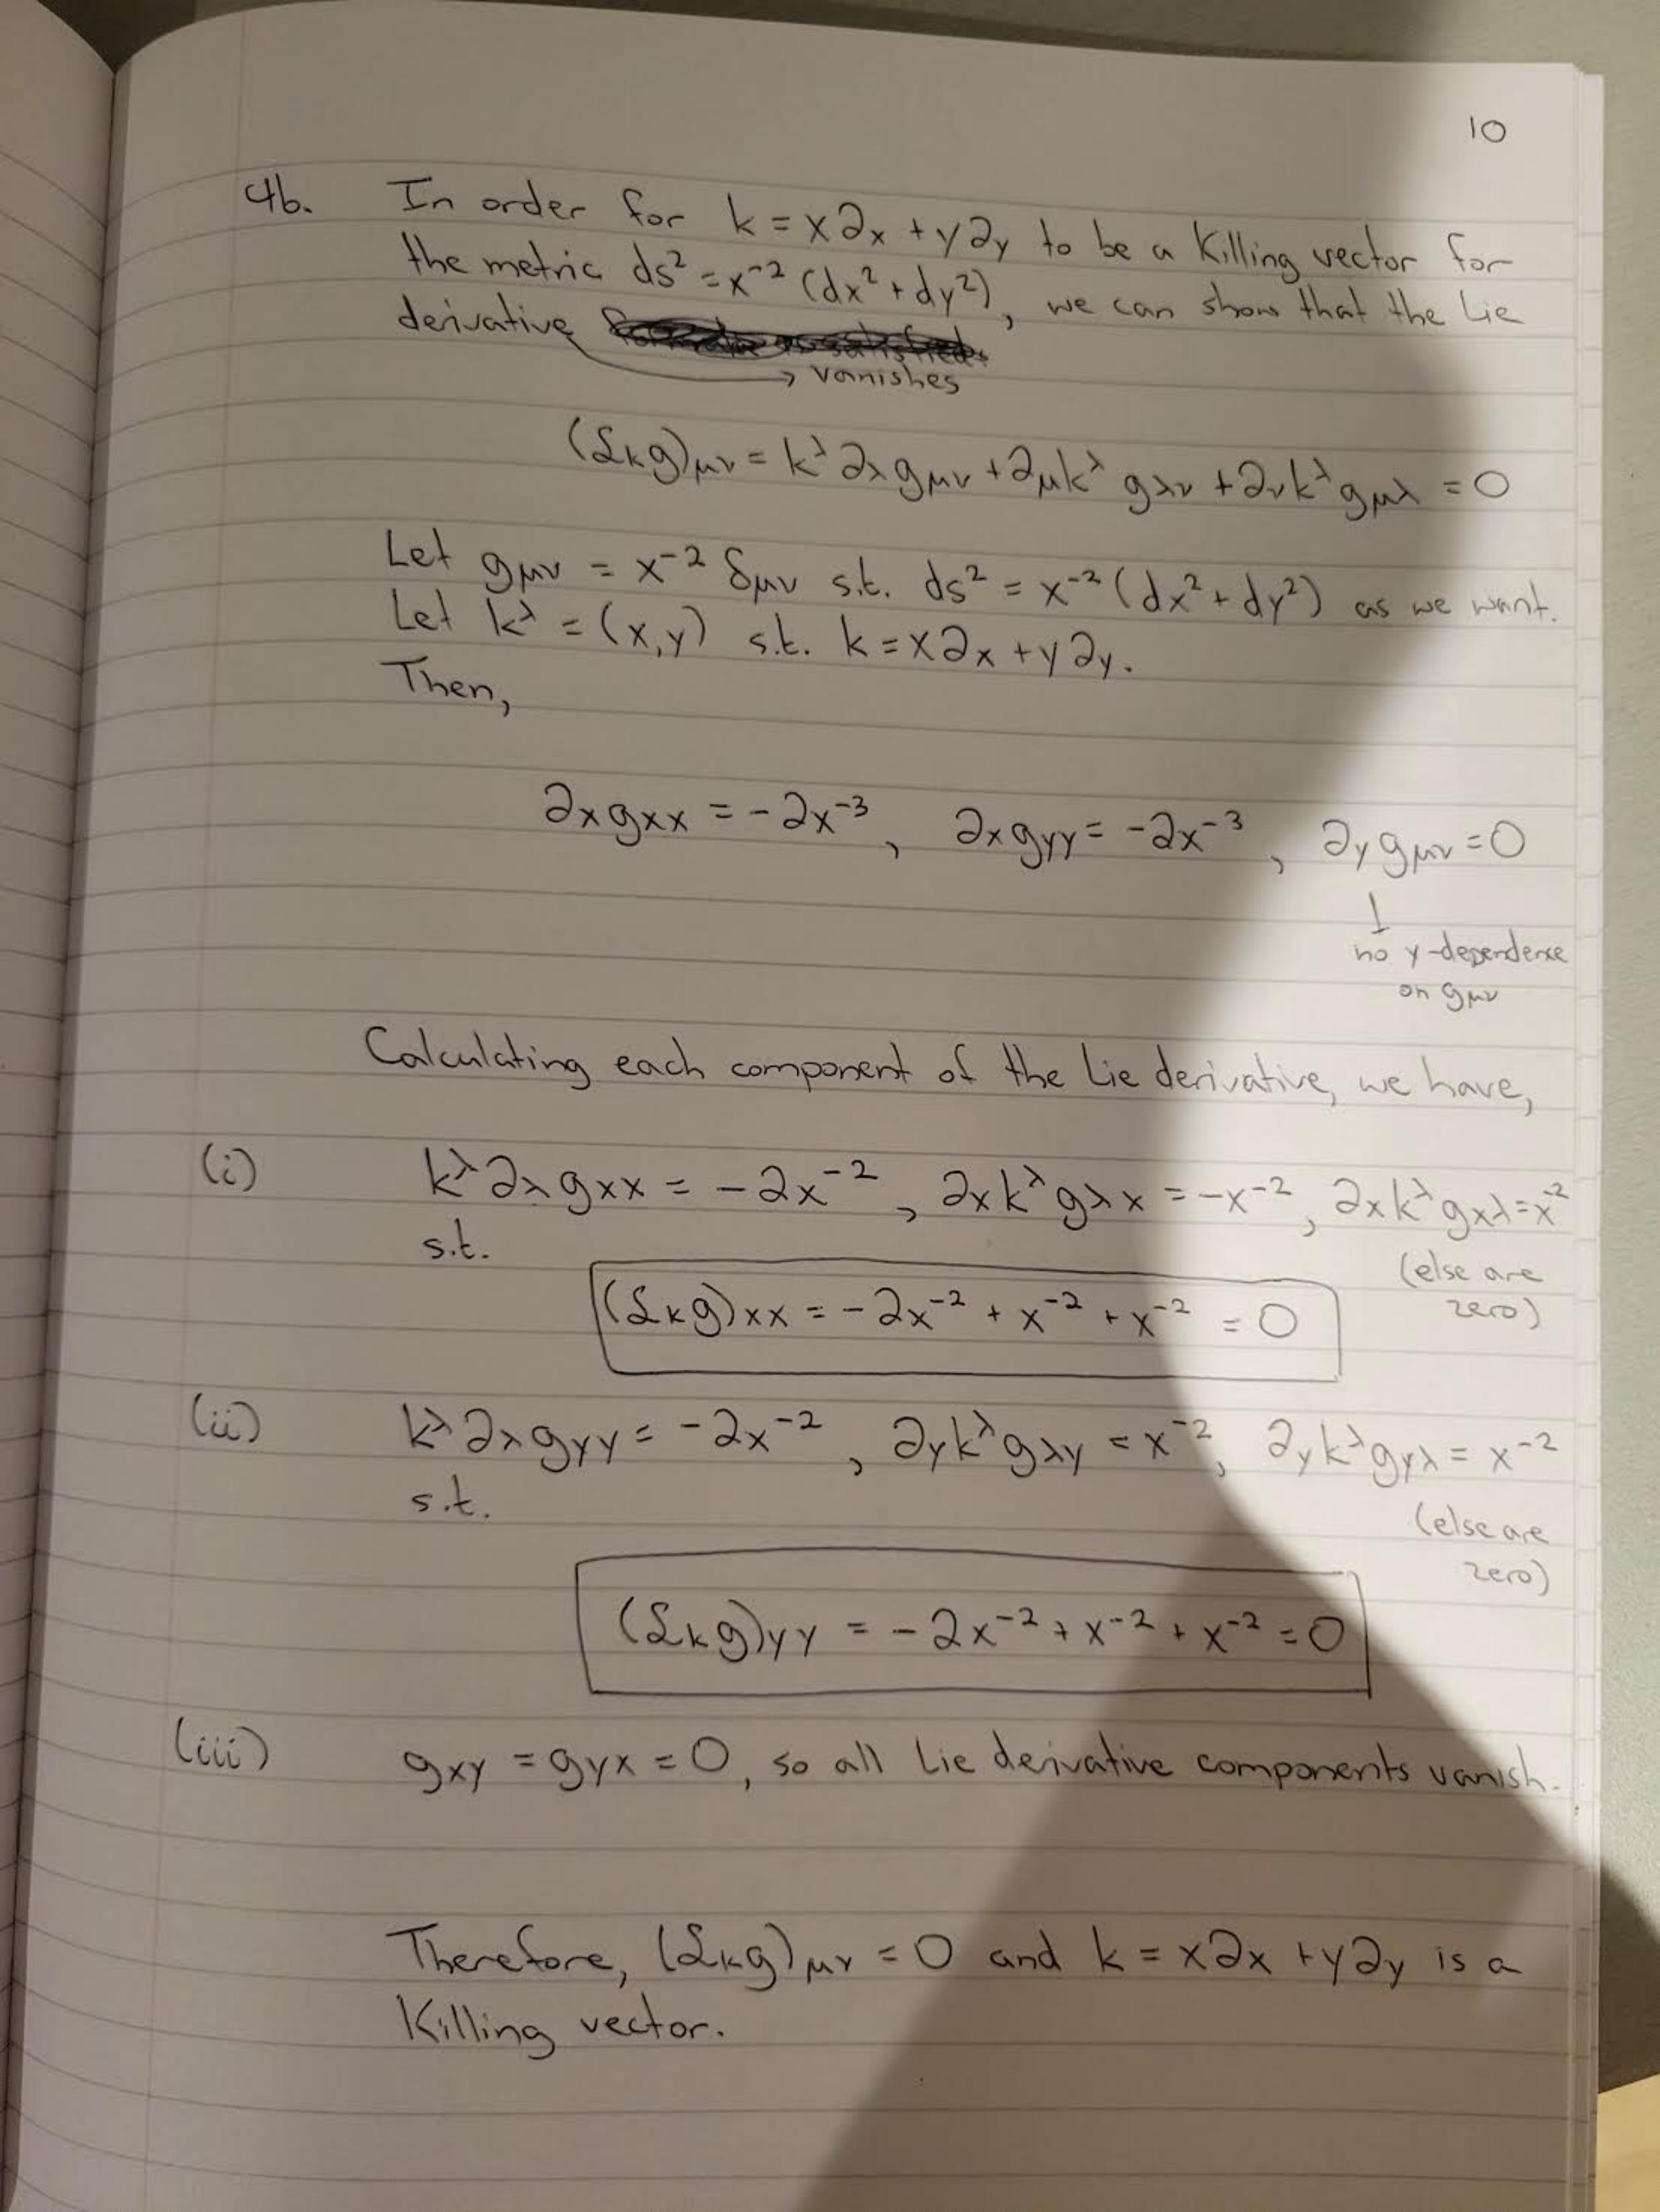 10
4b. In order for k = x∂x + y∂y to be a Killing vector for
the metric ds² = x⁻² (dx² + dy²), we can show that the Lie
derivative
→ vanishes
(£kg)μν = k^λ ∂λ gμν + ∂μk^λ gλν + ∂νk^λ gμλ = 0
Let gμν = x⁻² δμν s.t. ds² = x⁻² (dx² + dy²) as we want.
Let k^λ = (x,y) s.t. k = x∂x + y∂y.
Then,
∂x gxx = -2x⁻³, ∂x gyy = -2x⁻³, ∂y gμν = 0
↓
no y-dependence
on gμν
Calculating each component of the Lie derivative, we have,
(i) k^λ ∂λ gxx = -2x⁻², ∂xk^λ gλx = -x⁻², ∂xk^λ gxλ = x⁻²
s.t. (else are
(£kg)xx = -2x⁻² + x⁻² + x⁻² = 0 zero)
(ii) k^λ ∂λ gyy = -2x⁻², ∂yk^λ gλy = x⁻², ∂yk^λ gyλ = x⁻²
s.t. (else are
zero)
(£kg)yy = -2x⁻² + x⁻² + x⁻² = 0
(iii) gxy = gyx = 0, so all Lie derivative components vanish.
Therefore, (£kg)μν = 0 and k = x∂x + y∂y is a
Killing vector.